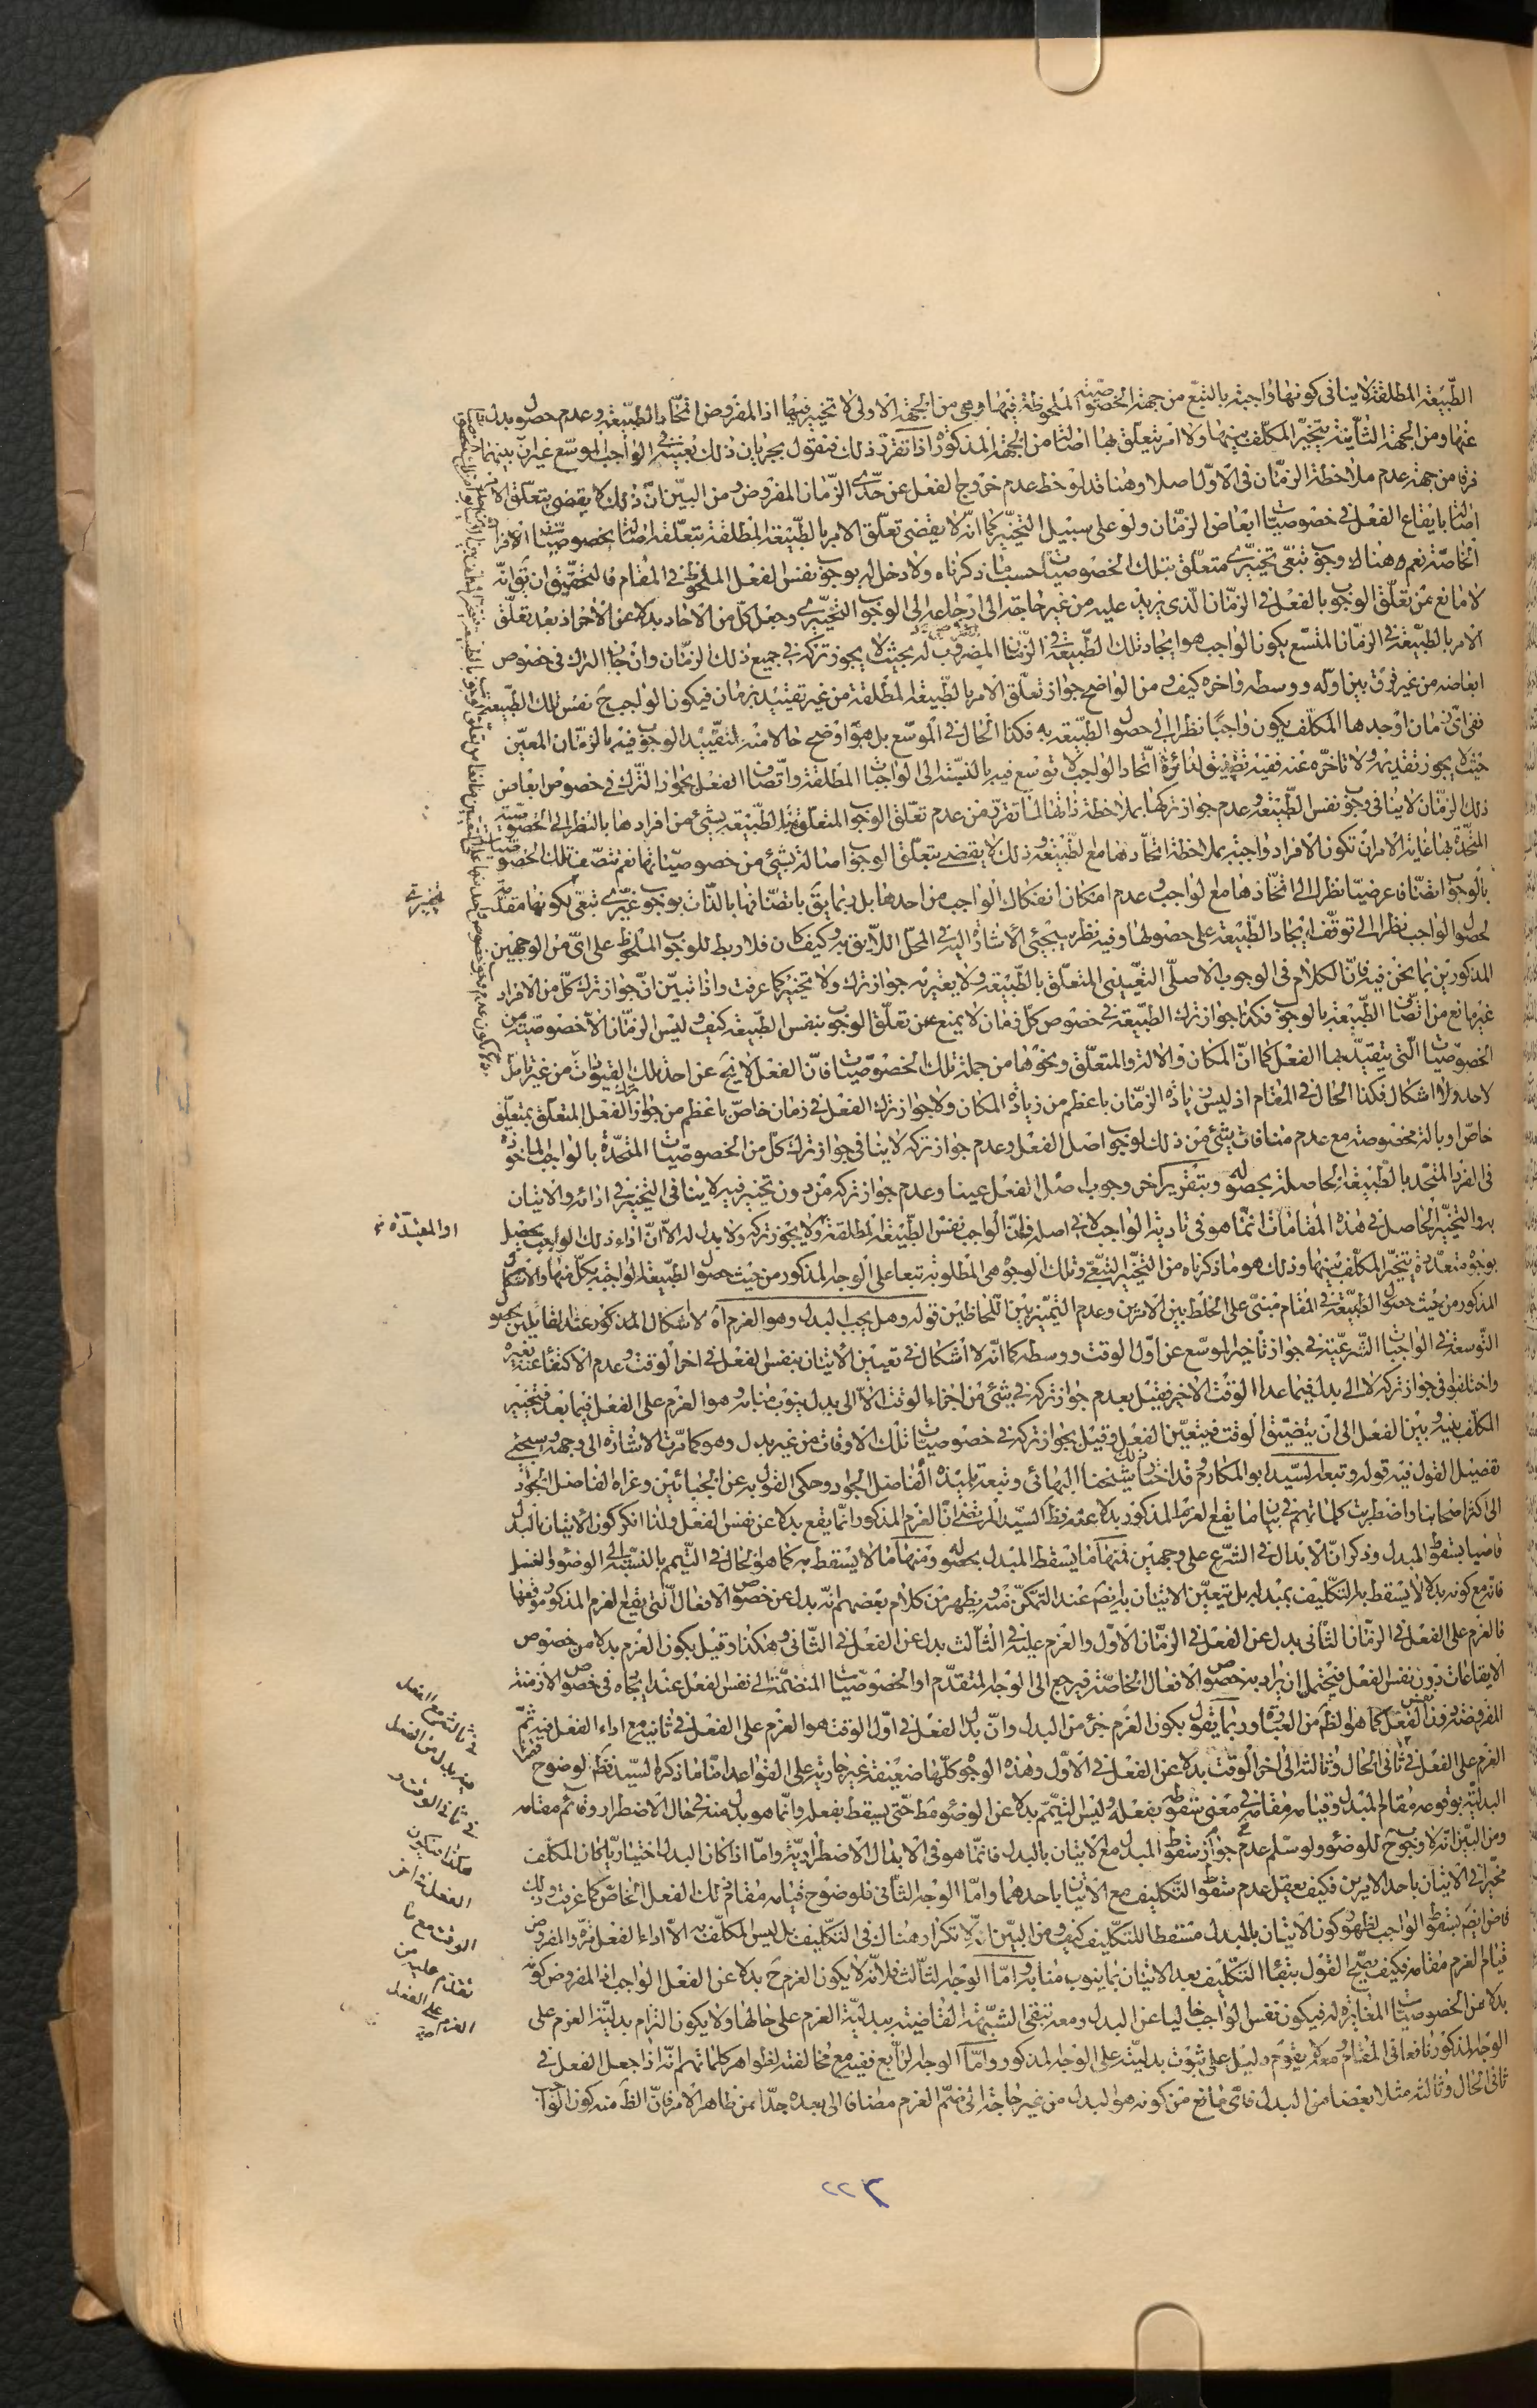 الطبيعة المطلقة لا ينافى كونها واجبة بالتبع من جهة الخصوصية الملحوظة فيها وهى من الجهة الاولى لا تخيير فيها اذ المفروض اتحاد الطبيعة وعدم حصول بدل
عنها ومن الجهة الثانية يتخير المكلف بينهما ولا امر يتعلق بها اصالة من الجهة المذكورة اذا تقرر ذلك فنقول بجريان ذلك بعينه فى الواجب الموسع غير ان بينهما
فرقا من جهة عدم ملاحظة الزمان فى الاول اصلا وهنا قد لوحظ عدم خروج الفعل عن حدى الزمان المفروض ومن البين ان ذلك لا يقضى بتعلق الامر
اصالة بايقاع الفعل فى خصوصيات ابعاض الزمان ولو على سبيل التخيير كما انه لا يقضى تعلق الامر بالطبيعة المطلقة بتعلقه اصالة بخصوصيات الافراد
الخاصة نعم هناك وجوب تبعى تخييرى متعلق بتلك الخصوصيات حسب ما ذكرناه ولا دخل له بوجوب نفس الفعل الملحوظ فى المقام فالتحقيق ان يق انه
لا مانع من تعلق الوجوب بالفعل فى الزمان الذى يزيد عليه من غير حاجة الى ارجاعه الى الوجوب التخييرى وجعل كل من الاحاد بدلا عن الاخر اذ بعد تعلق
الامر بالطبيعة فى الزمان المتسع يكون الواجب هو ايجاد تلك الطبيعة فى الزمان المضروب له بحيث لا يجوز تركه فى جميع ذلك الزمان وان جاز الترك فى خصوص
ابعاضه من غير فرق بين اوله ووسطه واخره كيف ومن الواضح جواز تعلق الامر بالطبيعة المطلقة من غير تقييد بزمان فيكون الواجب ح نفس تلك الطبيعة
ففى اى زمان اوجدها المكلف يكون واجبا نظرا الى حصول الطبيعة به فكذا الحال فى الموسع بل هو اوضح حالا منه لتقييد الوجوب فيه بالزمان المعين
حيث لا يجوز تقديمه ولا تاخره عنه ففيه تضييق لدائرة اتحاد الواجب لا توسع فيه بالنسبة الى الواجبات المطلقة واتصاف الفعل بجواز الترك فى خصوص ابعاض
ذلك الزمان لا ينافى وجوب نفس الطبيعة وعدم جواز تركها بملاحظة ذاتها لما تقرر من عدم تعلق الوجوب المتعلق بالطبيعة بشئ من افرادها بالنظر الى الخصوصية
المتحدة بها غاية الامر ان تكون الافراد واجبة بملاحظة اتحادها مع الطبيعة وذلك لا يقضى بتعلق الوجوب اصالة بشئ من خصوصياتها نعم تتصف تلك الخصوصيات
بالوجوب ايضا عرضيا نظرا الى اتحادها مع الواجب وعدم امكان انفكاك الواجب من احدها بل ربما يق باتصافها بالذات بوجوب غيرى تبعى لكونها مقدمة
لحصول الواجب نظرا الى توقف ايجاد الطبيعة على حصولها وفيه نظر سيجئ الاشارة اليه فى المحل اللايق به وكيف كان فلا ربط للوجوب الملحوظ على اى من الوجهين
المذكورين بما نحن فيه فان الكلام فى الوجوب الاصلى التعيينى المتعلق بالطبيعة ولا يعتريه جواز ترك ولا تخيير كما عرفت واذا تبين ان جواز ترك كل من الافراد
غير مانع من اتصاف الطبيعة بالوجوب فكذا جواز ترك الطبيعة فى خصوص كل زمان لا يمنع عن تعلق الوجوب بنفس الطبيعة كيف وليس الزمان الا خصوصية من
الخصوصيات التى يتقيد بها الفعل كما ان المكان والالة والمتعلق ونحوها من جملة تلك الخصوصيات فان الفعل لا ينح عن احد تلك القيودات من غير تامل
لاحد ولا اشكال فكذا الحال فى المقام اذ ليس زيادة الزمان باعظم من زيادة المكان ولا جواز ترك الفعل فى زمان خاص باعظم من جواز ترك الفعل المتعلق بمتعلق
خاص او بالة مخصوصة مع عدم منافات شئ من ذلك لوجوب اصل الفعل وعدم جواز تركه لا ينافى جواز ترك كل من الخصوصيات المتحدة بالواجب الماخوذة
فى الفرد المتحد بالطبيعة الحاصلة بحصوله وبتقرير اخر وجوب اصل الفعل عينا وعدم جواز تركه من دون تخيير فيه لا ينافى التخيير فى ادائه والاتيان
به والتخيير الحاصل فى هذه المقامات انما هو فى تادية الواجب لا فى اصله فان الواجب نفس الطبيعة المطلقة ولا يجوز تركه ولا بدل له الا ان اداء ذلك الواجب يحصل
بوجوه متعددة يتخير المكلف بينها وذلك هو ما ذكرناه من التخيير التبعى وتلك الوجوه هى المطلوبة تبعا على الوجه المذكور من حيث حصول الطبيعة الواجبة بكل منها والاشكال
المذكور من حيث حصول الطبيعة فى المقام مبنى على الخلط بين الامرين وعدم التميز بين اللحاظين قوله وهل يجب البدل وهو العزم اه لا اشكال المذكور عند القايلين بجواز
التوسعة فى الواجبات الشرعية فى جواز تاخير الموسع عن اول الوقت ووسطه كما انه لا اشكال فى تعيين الاتيان بنفس الفعل فى اخر الوقت وعدم الاكتفاء عنه بغيره
واختلفوا فى جواز تركه لا الى بدل فيما عدا الوقت الاخير فقيل بعدم جواز تركه فى شئ من اجزاء الوقت الا الى بدل ينوب منابه وهو العزم على الفعل فيما بعد فيتخير
المكلف بينه وبين الفعل الى ان يتضيق الوقت فيتعين الفعل وقيل بجواز تركه فى خصوصيات تلك الاوقات من غير بدل وهو كما مرت الاشارة الى وجهه وسيجئ
تفصيل القول فيه قوله وتبعه السيد ابو المكارم قد اختار ذلك شيخنا البهائى وتبعه تلميذه الفاضل الجواد وحكى القول به عن الجبائيين وعزاه الفاضل الجواد
الى اكثر اصحابنا واضطربت كلماتهم فى بيان ما يقع العزم المذكور بدلا عنه فظ السيد المرتضى ان العزم المذكور انما يقع بدلا عن نفس الفعل ولذا انكر كون الاتيان بالبدل
قاضيا بسقوط المبدل وذكر ان الابدال فى الشرع على وجهين فمنها ما يسقط المبدل بحصوله ومنها ما لا يسقط به كما هو الحال فى التيمم بالنسبة الى الوضوء والغسل
فانه مع كونه بدلا لا يسقط به التكليف بمبدله بل يتعين الاتيان به ايض عند التمكن منه ويظهر من كلام بعضهم انه بدل عن خصوص الافعال التى يقع العزم المذكور موقعها
فالعزم على الفعل فى الزمان الثانى بدل عن الفعل فى الزمان الاول والعزم عليه فى الثالث بدل عن الفعل فى الثانى وهكذا وقيل بكون العزم بدلا من خصوص
الايقاعات دون نفس الفعل فيحتمل ان يراد به خصوص الافعال الخاصة فيرجع الى الوجه المتقدم او الخصوصيات المنضمة الى نفس الفعل عند ايجاده فى خصوص الازمنة
المفروضة دون نفس الفعل كما هو الظ من العبارة وربما يقول بكون العزم جزء من البدل وان بدل الفعل فى اول الوقت هو العزم على الفعل فى ثانيه مع اداء الفعل فيه ثم
العزم على الفعل فى ثانى الحال وثالثه الى اخر الوقت بدلا عن الفعل فى الاول وهذه الوجوه كلها ضعيفة غير جارية على القواعد اما ما ذكره السيد فظ لوضوح قضاء
البدلية بوقوعه مقام المبدل وقيامه مقامه فى معنى سقوطه بفعله وليس التيمم بدلا عن الوضوء مط حتى يسقط بفعله وانما هو بدل منه فى حال الاضطرار وقائم مقامه
ومن البين انه لا وجوب ح للوضوء ولو سلم عدم جواز سقوط المبدل مع الاتيان بالبدل فانما هو فى الابدال الاضطرارية واما اذا كان البدل اختياريا كان المكلف
مخيرا فى الاتيان باحد الامرين فكيف يعقل عدم سقوط التكليف مع الاتيان باحدهما واما الوجه الثانى فلوضوح قيامه مقام ذلك الفعل الخاص كما عرفت وذلك
قاض ايض بسقوط الواجب لظهور كون الاتيان بالبدل مسقطا للتكليف كيف ومن البين ان لا تكرار هناك فى التكليف بل ليس المكلف به الا اداء الفعل مرة والمفروض
قيام العزم مقامه فكيف يصح القول ببقاء التكليف بعد الاتيان بما ينوب منابه واما الوجه الثالث فلانه لا يكون العزم ح بدلا عن الفعل الواجب اذ المفروض كونه
بدلا عن الخصوصيات المغايرة له فيكون نفس الواجب خاليا عن البدل ومعه تبقى الشبهة القاضية ببدلية العزم على حالها ولا يكون التزام بدلية العزم على
الوجه المذكور نافعا فى المقام ومعه لا يقوم دليل على ثبوت بدليته على الوجه المذكور واما الوجه الرابع ففيه مع مخالفته لظواهر كلماتهم انه اذا جعل الفعل فى
ثانى الحال وثالثه مثلا بعضا من البدل فاى مانع من كونه هو البدل من غير حاجة الى ضم العزم مضافا الى بعده جدا عن ظاهر الامر فان الظ منه كون الواجب
تخييرى
او المقيدة
فى ثالثه مع الفعل
فيه بدل من الفعل
فى ثانى الوقت و
هكذا فيكون
الفعل فى اخر
الوقت مع ما
تقدم عليه من
العزم على الفعل
٢٢٦